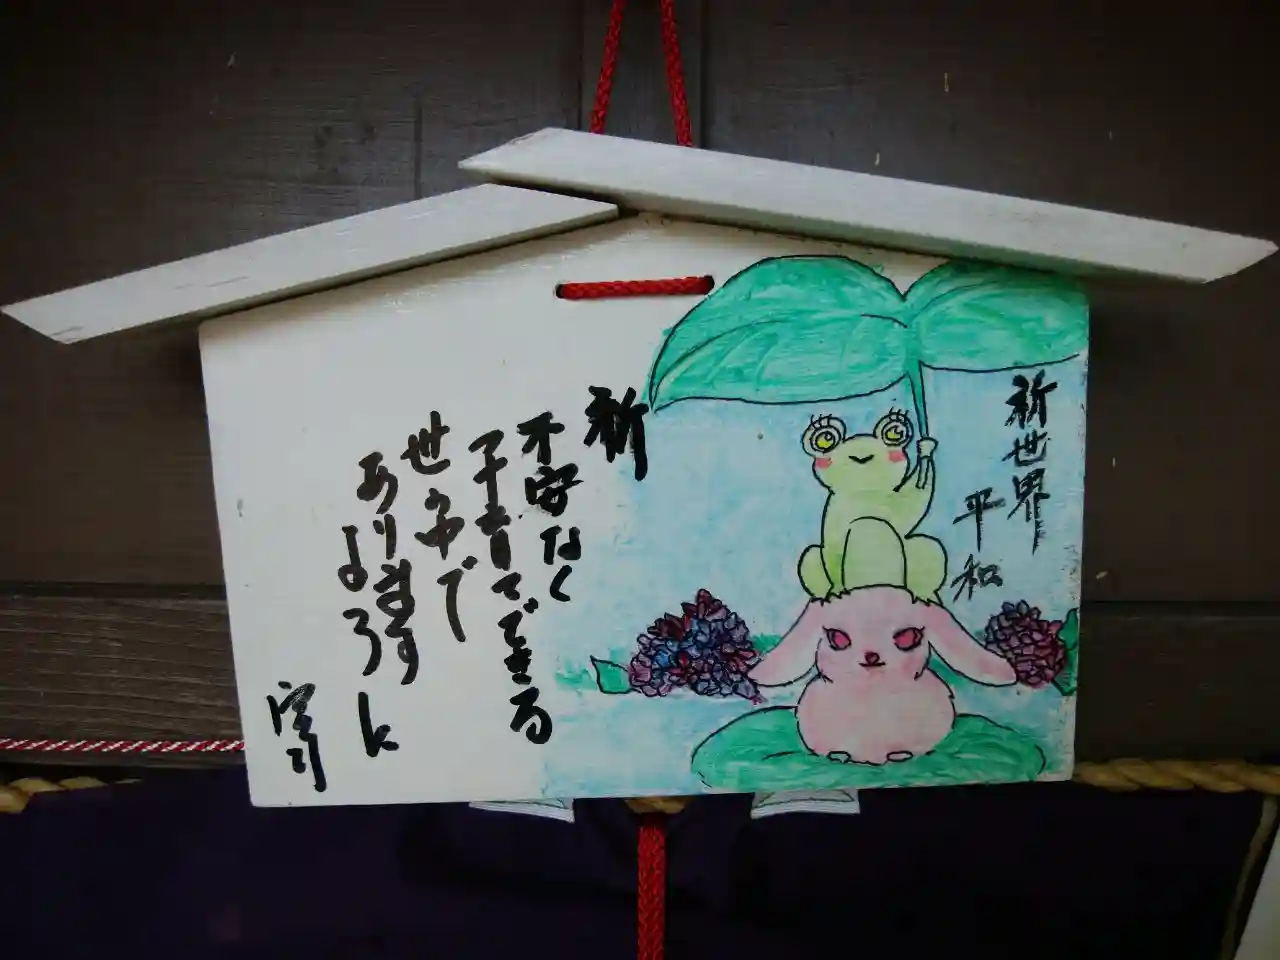 祈世界
平和
祈
不安なく
子育てできる
世の中で
あります
ように